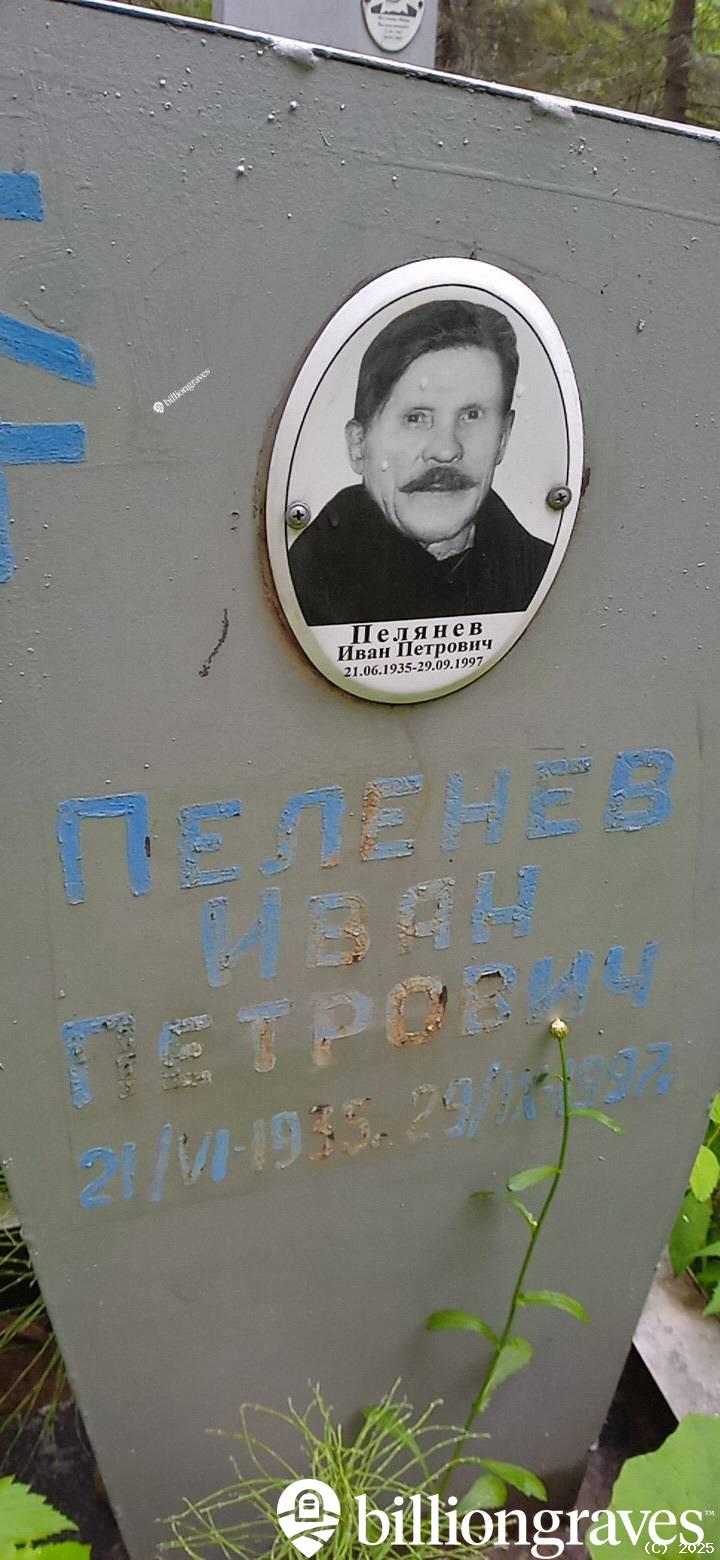 billiongraves
Пелянев
Иван Петрович
21.06.1935-29.09.1997
ПЕЛЕНЕВ
ИВАН
ПЕТРОВИЧ
21/VI-1935. 29/IX-1997.
billiongraves™
(C) 2025